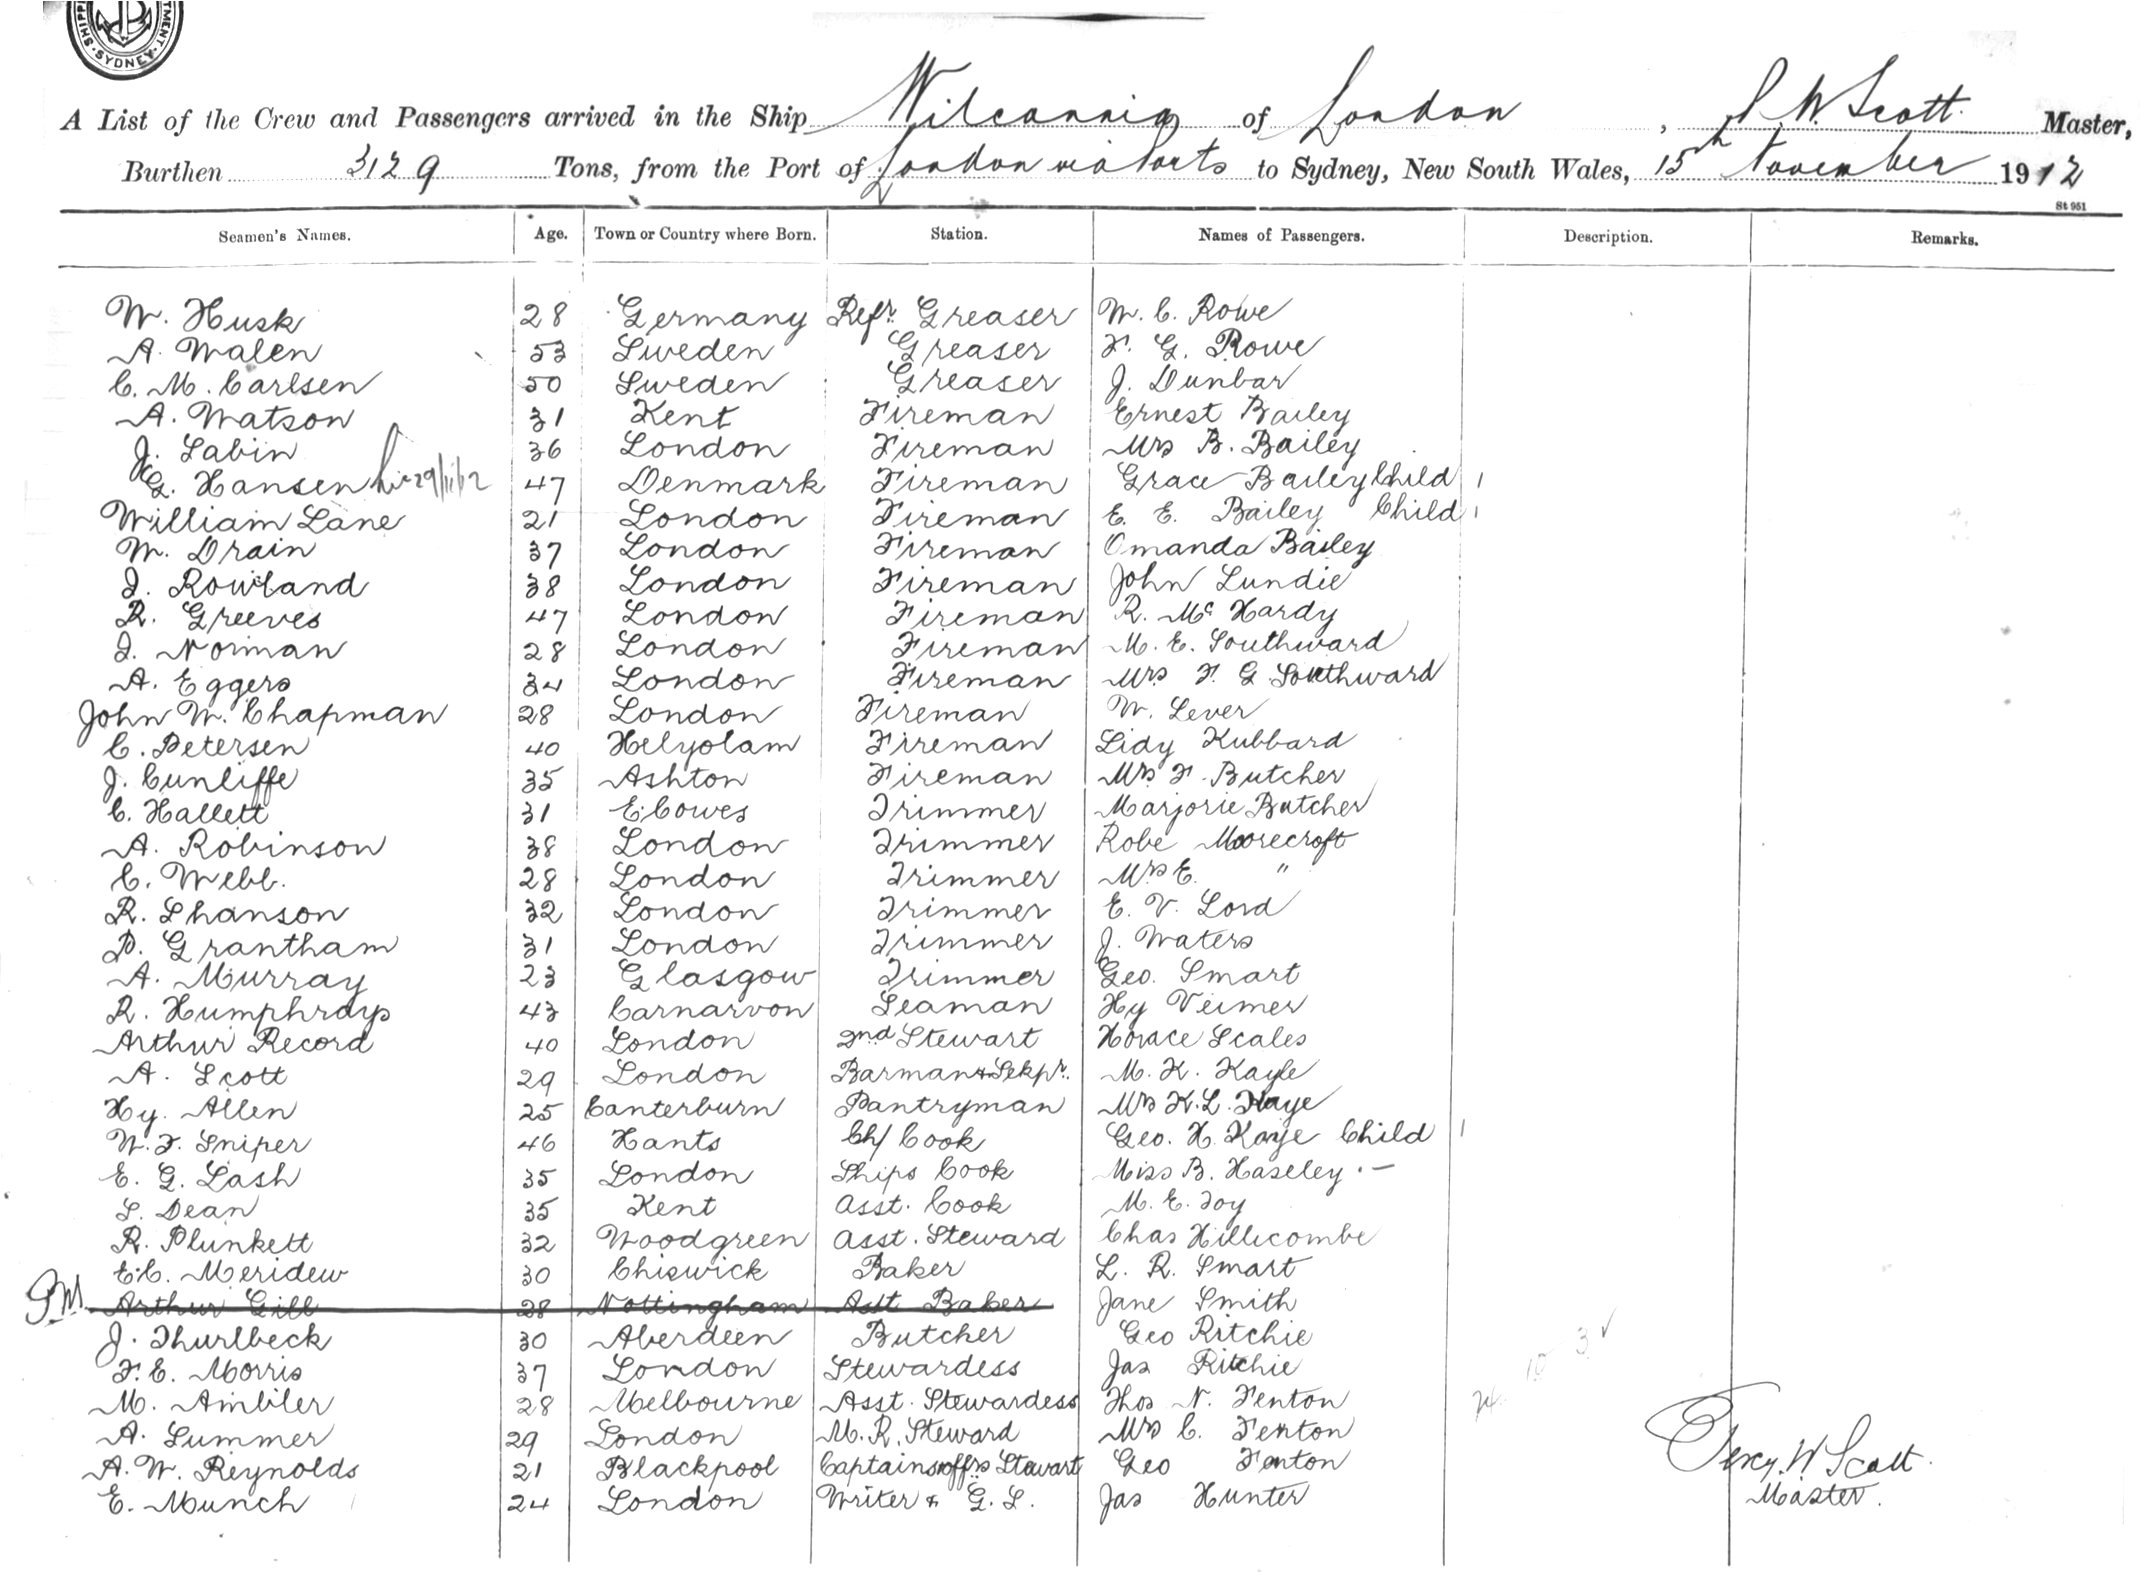 SHIPP TMENT. SYDNEY
A List of the Crew and Passengers arrived in the Ship Wilcannia of London, P. W. Scott. Master,
Burthen 3129 Tons, from the Port of London via Ports to Sydney, New South Wales, 15th November 1912
St 951
Seamen's Names. Age. Town or Country where Born. Station. Names of Passengers. Description. Remarks.
W. Husk 28 Germany Refr. Greaser W. C. Rowe
A. Walen 53 Sweden Greaser F. G. Rowe
C. M. Carlsen 50 Sweden Greaser J. Dunbar
A. Watson 31 Kent Fireman Ernest Bailey
J. Sabin 36 London Fireman Mrs B. Bailey
G. Hansen 29/11/12 47 Denmark Fireman Grace Bailey Child 1
William Lane 21 London Fireman E. E. Bailey Child 1
W. Drain 37 London Fireman Omanda Bailey
J. Rowland 38 London Fireman John Lundie
R. Greeves 47 London Fireman R. Mc Hardy
J. Norman 28 London Fireman M. E. Southward
A. Eggers 34 London Fireman Mrs F. G Southward
John W. Chapman 28 London Fireman W. Lever
C. Petersen 40 Helyolam Fireman Lidy Hubbard
J. Cunliffe 35 Ashton Fireman Mrs F. Butcher
C. Hallett 31 E. Cowes Trimmer Marjorie Butcher
A. Robinson 38 London Trimmer Robe Moorecroft
C. Webb. 28 London Trimmer Mrs E. "
R. Shanson 32 London Trimmer E. V. Lord
P. Grantham 31 London Trimmer J. Waters
A. Murray 23 Glasgow Trimmer Geo. Smart
R. Humphrays 43 Carnarvon Seaman Hy Veimer
Arthur Record 40 London 2nd Stewart Horace Scales
A. Scott 29 London Barman & Sekpr. M. K. Kayle
Hy. Allen 25 Canterburn Pantryman Mrs K. L. Kaye
W. F. Sniper 46 Hants Ch/ Cook Geo. H. Kaye Child 1
E. G. Lash 35 London Ships Cook Miss B. Haseley
S. Dean 35 Kent Asst. Cook M. E. Toy
R. Plunkett 32 Woodgreen Asst. Steward Chas Hillicombe
E. C. Meridew 30 Chiswick Baker L. R. Smart
Arthur Gill 28 Nottingham Asst Baker Jane Smith
J. Thurlbeck 30 Aberdeen Butcher Geo Ritchie
F. E. Morris 37 London Stewardess Jas Ritchie
M. Ambler 28 Melbourne Asst. Stewardess Thos N. Fenton
A. Summer 29 London M. R. Steward Mrs C. Fenton
A. W. Reynolds 21 Blackpool Captains offrs Stewart Geo Fenton
E. Munch 24 London Writer & G. S. Jas Hunter
24 10 3
Percy. W Scott.
Master.